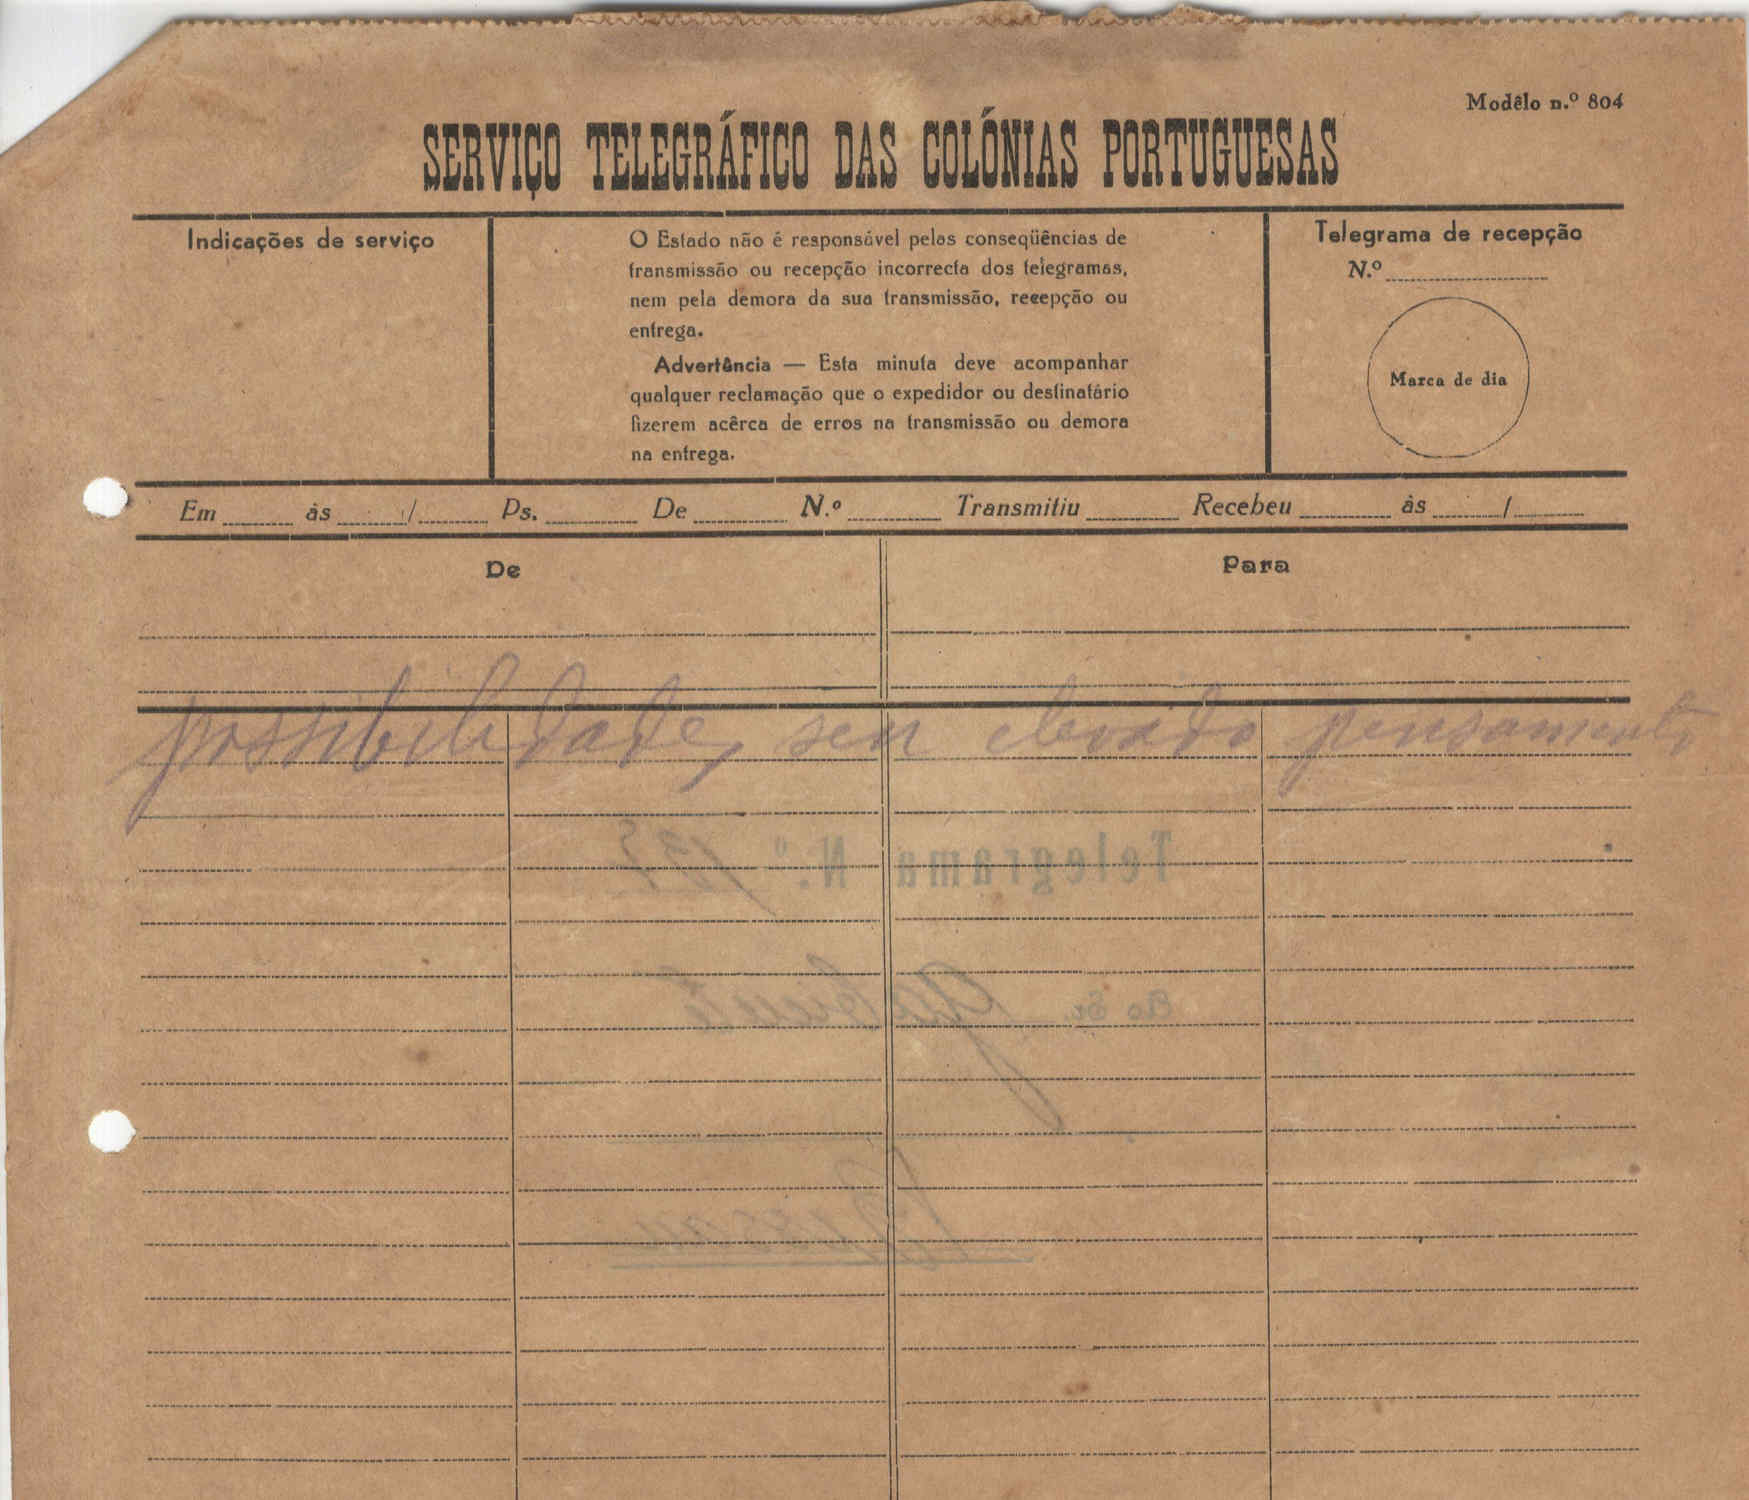 Modêlo n.º 804
SERVIÇO TELEGRÁFICO DAS COLÓNIAS PORTUGUESAS
Indicações de serviço
O Estado não é responsável pelas conseqüências de
transmissão ou recepção incorrecta dos telegramas,
nem pela demora da sua transmissão, recepção ou
entrega.
Advertência — Esta minuta deve acompanhar
qualquer reclamação que o expedidor ou destinatário
fizerem acêrca de erros na transmissão ou demora
na entrega.
Telegrama de recepção
N.º
Marca de dia
Em às / Ps. De N.º Transmitiu Recebeu às /
De
Para
possibilidade, seu elevado pensamento
Telegrama N.º
Ao Sr.